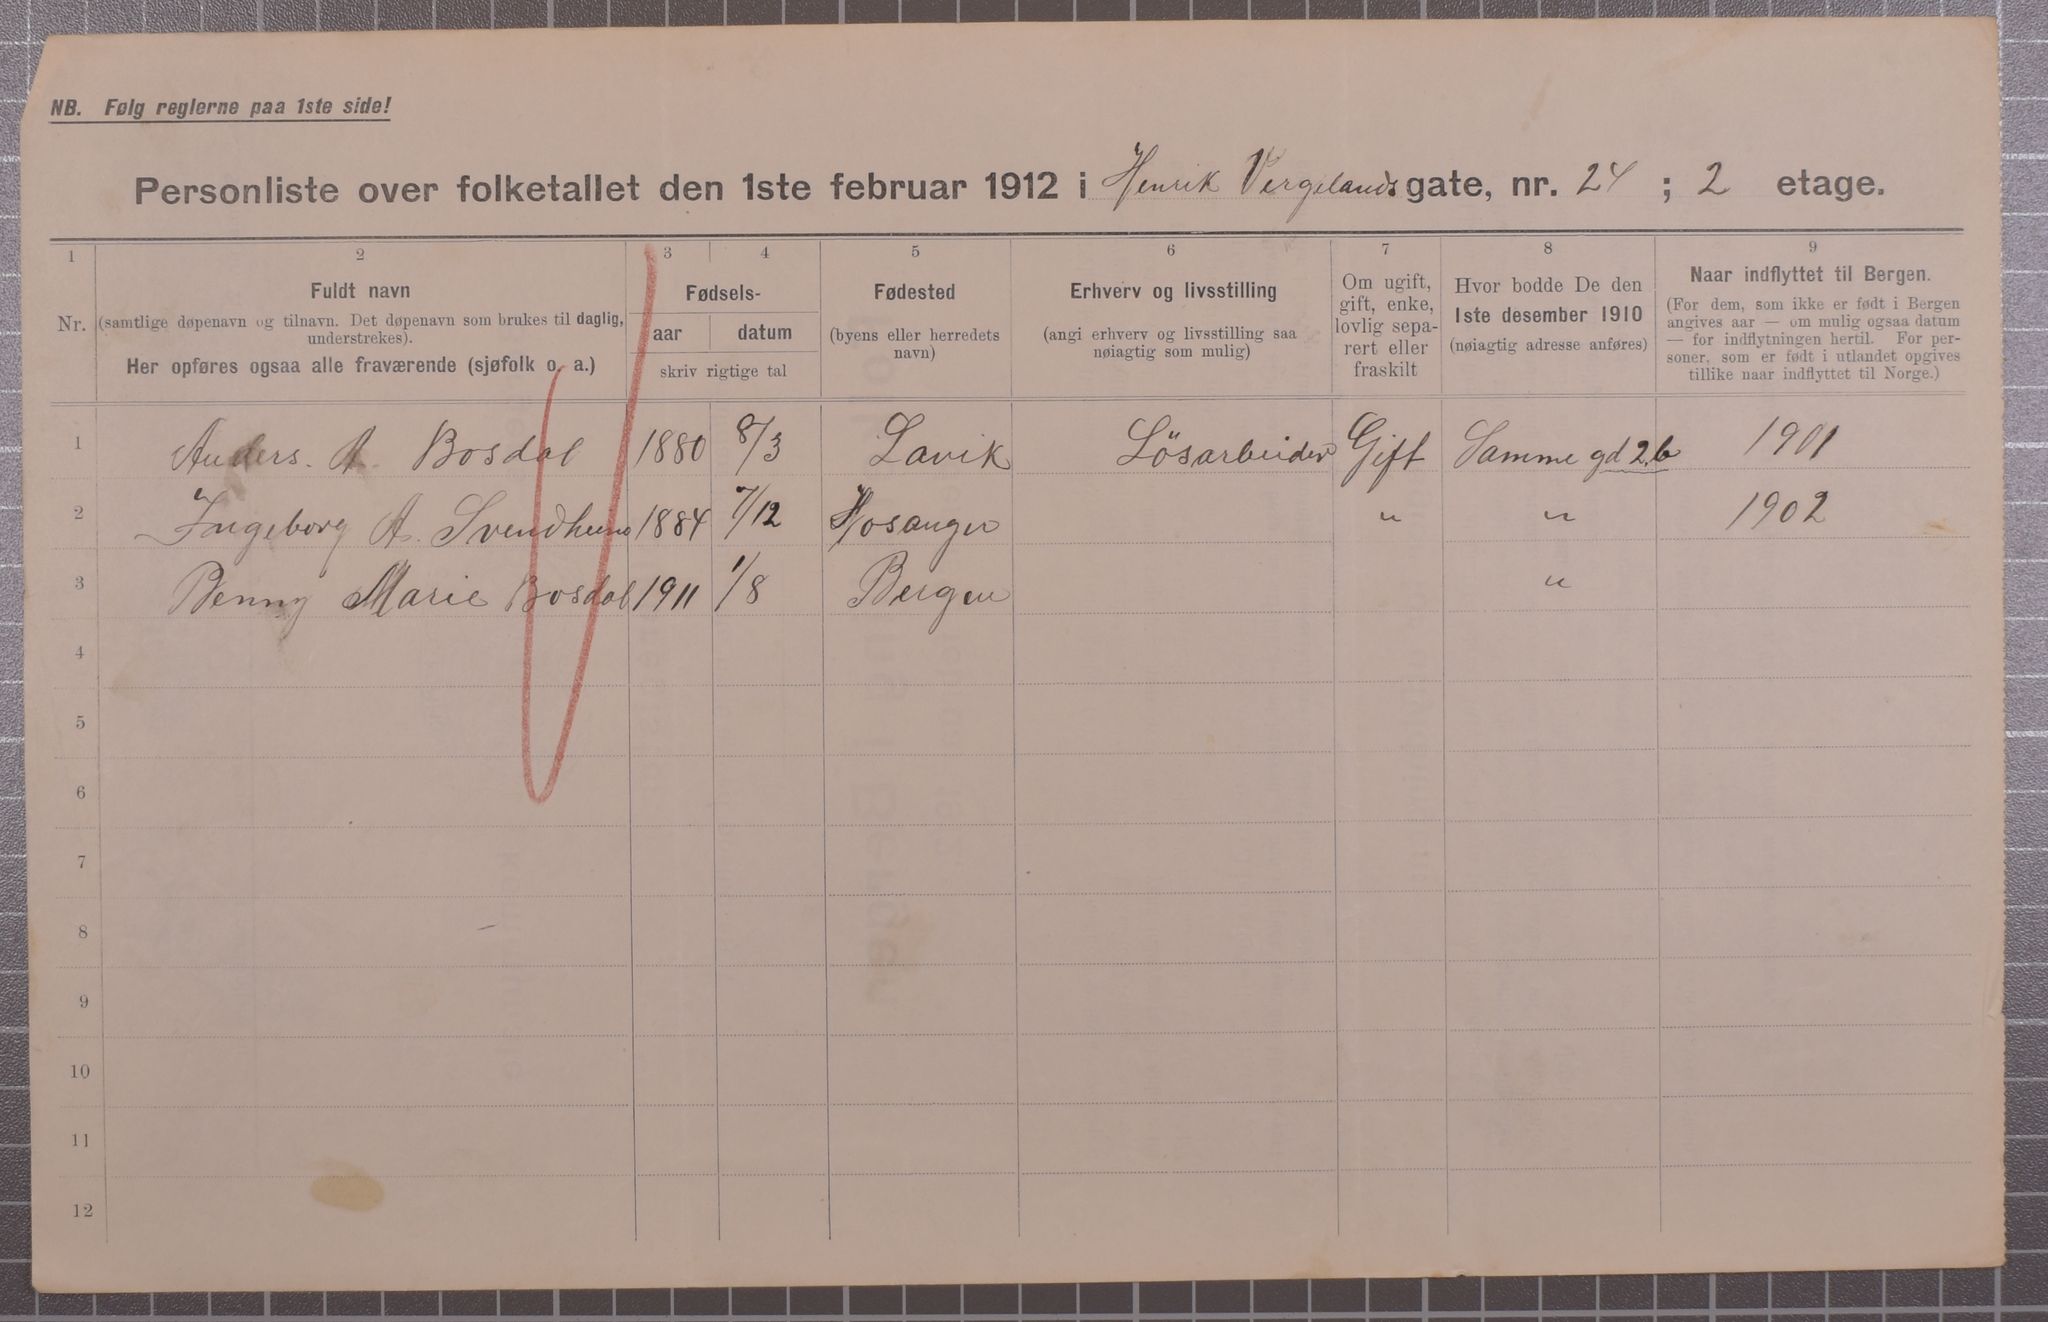 NB. Følg reglerne paa 1ste side!
Personliste over folketallet den 1ste februar 1912 i Henrik Vergelands gate, nr. 24 ; 2 etage.
1 2 3 4 5 6 7 8 9
Nr.
Fuldt navn
(samtlige døpenavn og tilnavn. Det døpenavn som brukes til daglig,
understrekes).
Her opføres ogsaa alle fraværende (sjøfolk o. a.)
Fødsels-
aar datum
skriv rigtige tal
Fødested
(byens eller herredets
navn)
Erhverv og livsstilling
(angi erhverv og livsstilling saa
nøiagtig som mulig)
Om ugift,
gift, enke,
lovlig sepa-
rert eller
fraskilt
Hvor bodde De den
1ste desember 1910
(nøiagtig adresse anføres)
Naar indflyttet til Bergen.
(For dem, som ikke er født i Bergen
angives aar — om mulig ogsaa datum
— for indflytningen hertil. For per-
soner, som er født i utlandet opgives
tillike naar indflyttet til Norge.)
1 Anders. A. Bosdal 1880 8/3 Lavik Lösarbeider Gift Samme gd 2b 1901
2 Ingeborg A. 1884 7/12 Hosanger " " 1902
3 Benny Marie Bosdal 1911 1/8 Bergen "
4
5
6
7
8
9
10
11
12